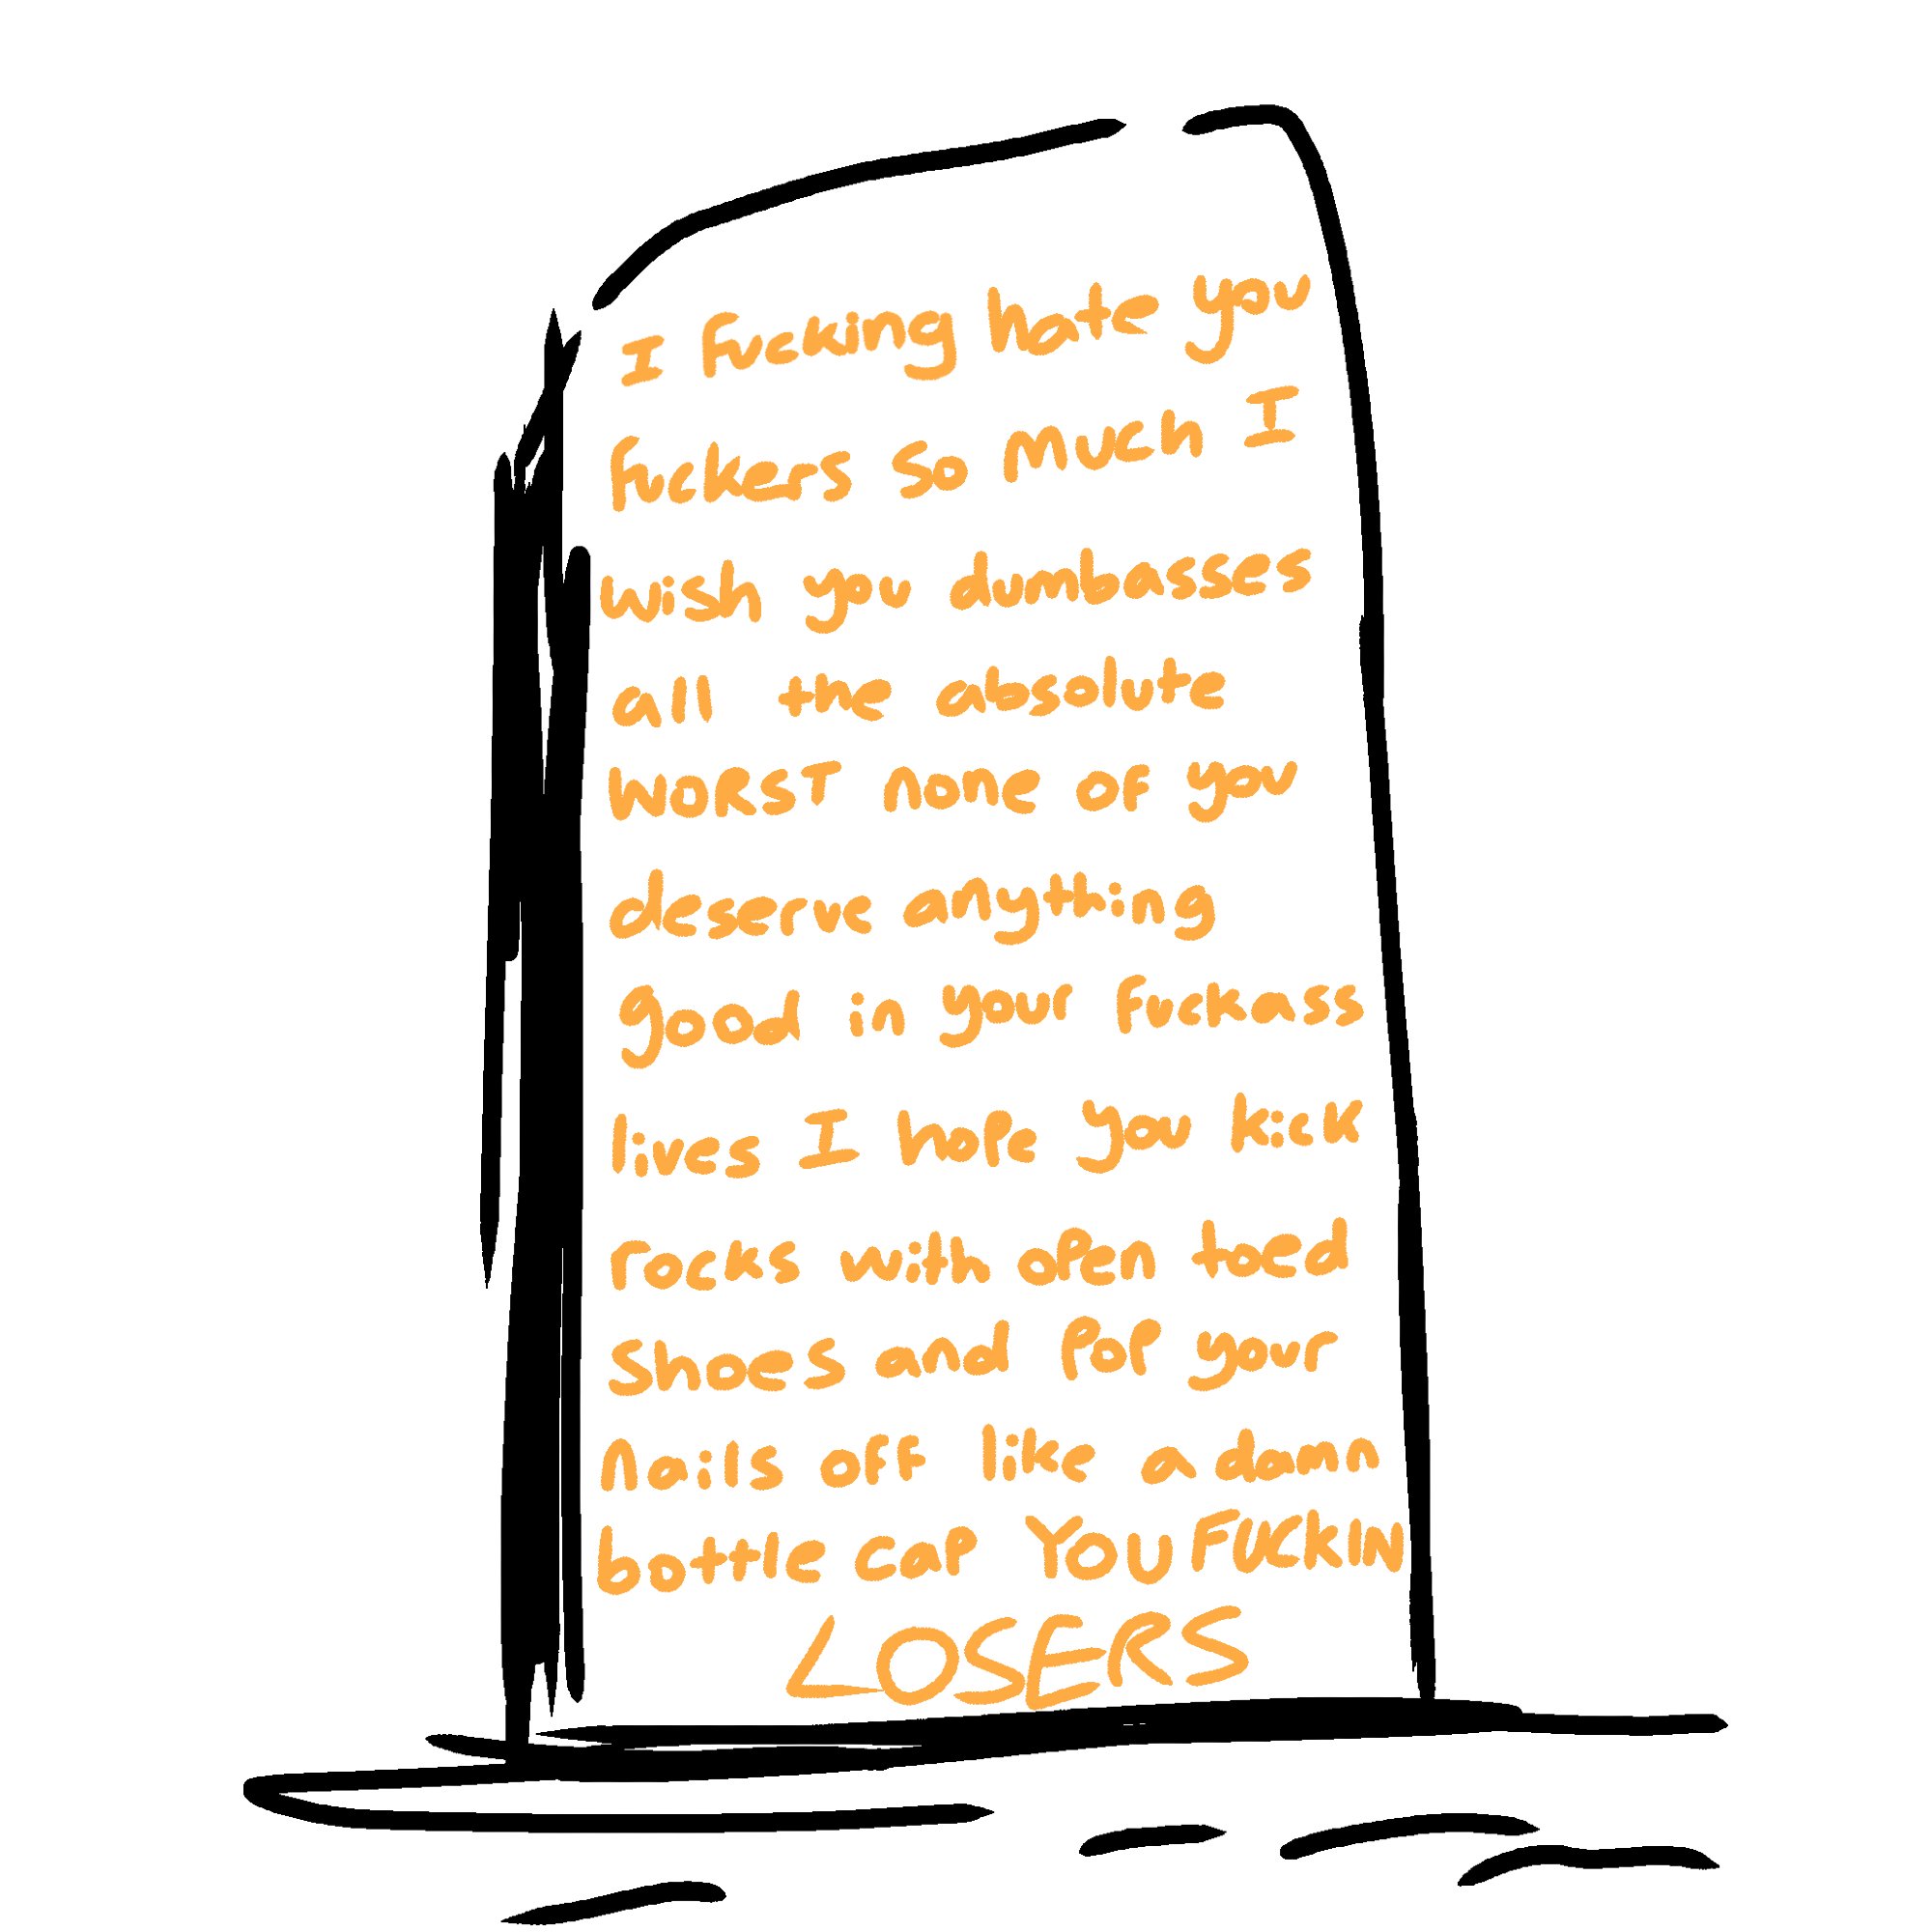 I fucking hate you
fuckers so much I
wish you dumbasses
all the absolute
WORST none of you
deserve anything
good in your fuckass
lives I hope you kick
rocks with open toed
shoes and pop your
nails off like a damn
bottle cap YOU FUCKIN
LOSERS